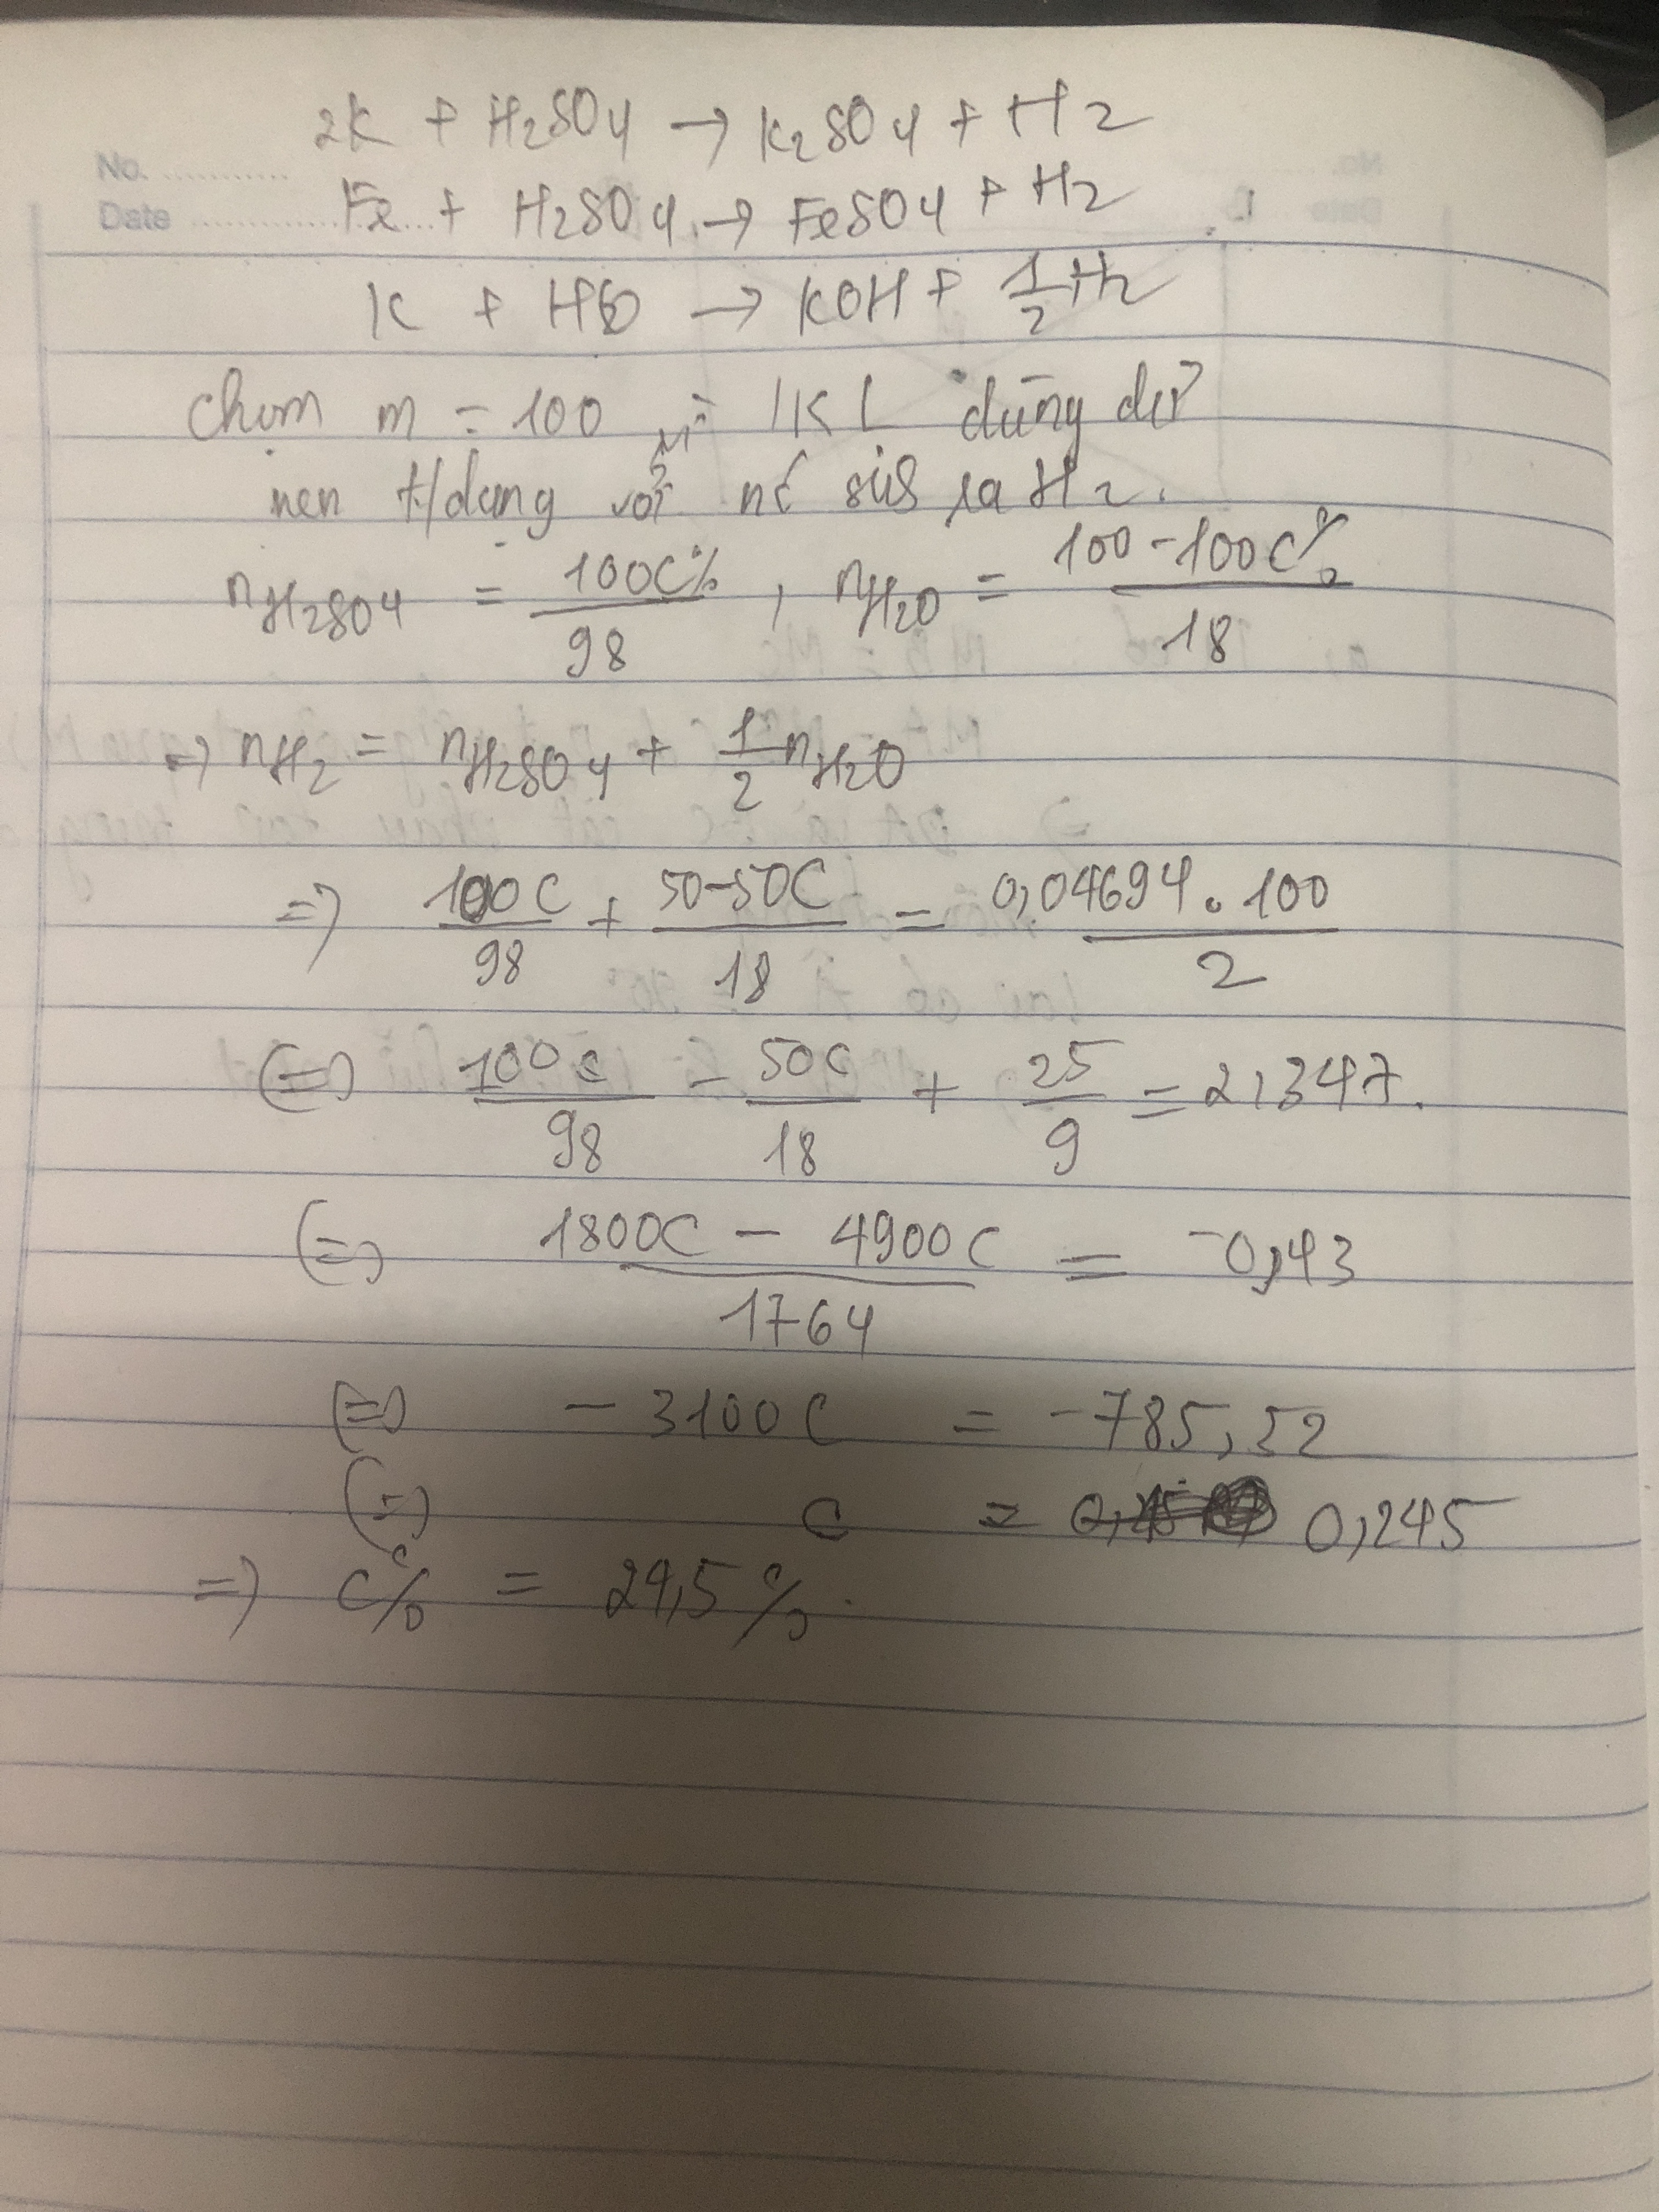 2K + H2SO4 → K2SO4 + H2
No. ...........
Fe + H2SO4 → FeSO4 + H2
Date ..................
K + H2O → KOH + 1/2 H2
Chọn m = 100 vì KL dùng dư
nen t/dụng với nc sūs ra H2.
nH2SO4 = 100C%/98 , nH2O = (100-100C%)/18
=> nH2 = nH2SO4 + 1/2 nH2O
=> 100C/98 + (50-50C)/18 = (0,04694.100)/2
(=) 100C/98 - 50C/18 + 25/9 = 2,347.
(=) (1800C - 4900C)/1764 = -0,43
(=) -3100C = -785,52
(=) C = 0,245
=> C% = 24,5%.